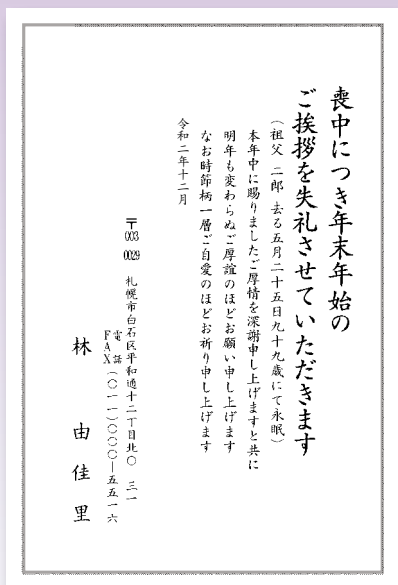 喪中につき年末年始の
ご挨拶を失礼させていただきます
(祖父 二郎 去る五月二十五日九十九歳にて永眠)
本年中に賜りましたご厚情を深謝申し上げますと共に
明年も変わらぬご厚誼のほどお願い申し上げます
なお時節柄一層ご自愛のほどお祈り申し上げます
令和二年十二月
〒003 0029 札幌市白石区平和通十二丁目北〇 三一
電話
FAX (〇一一)〇〇〇―五五一六
林 由佳里